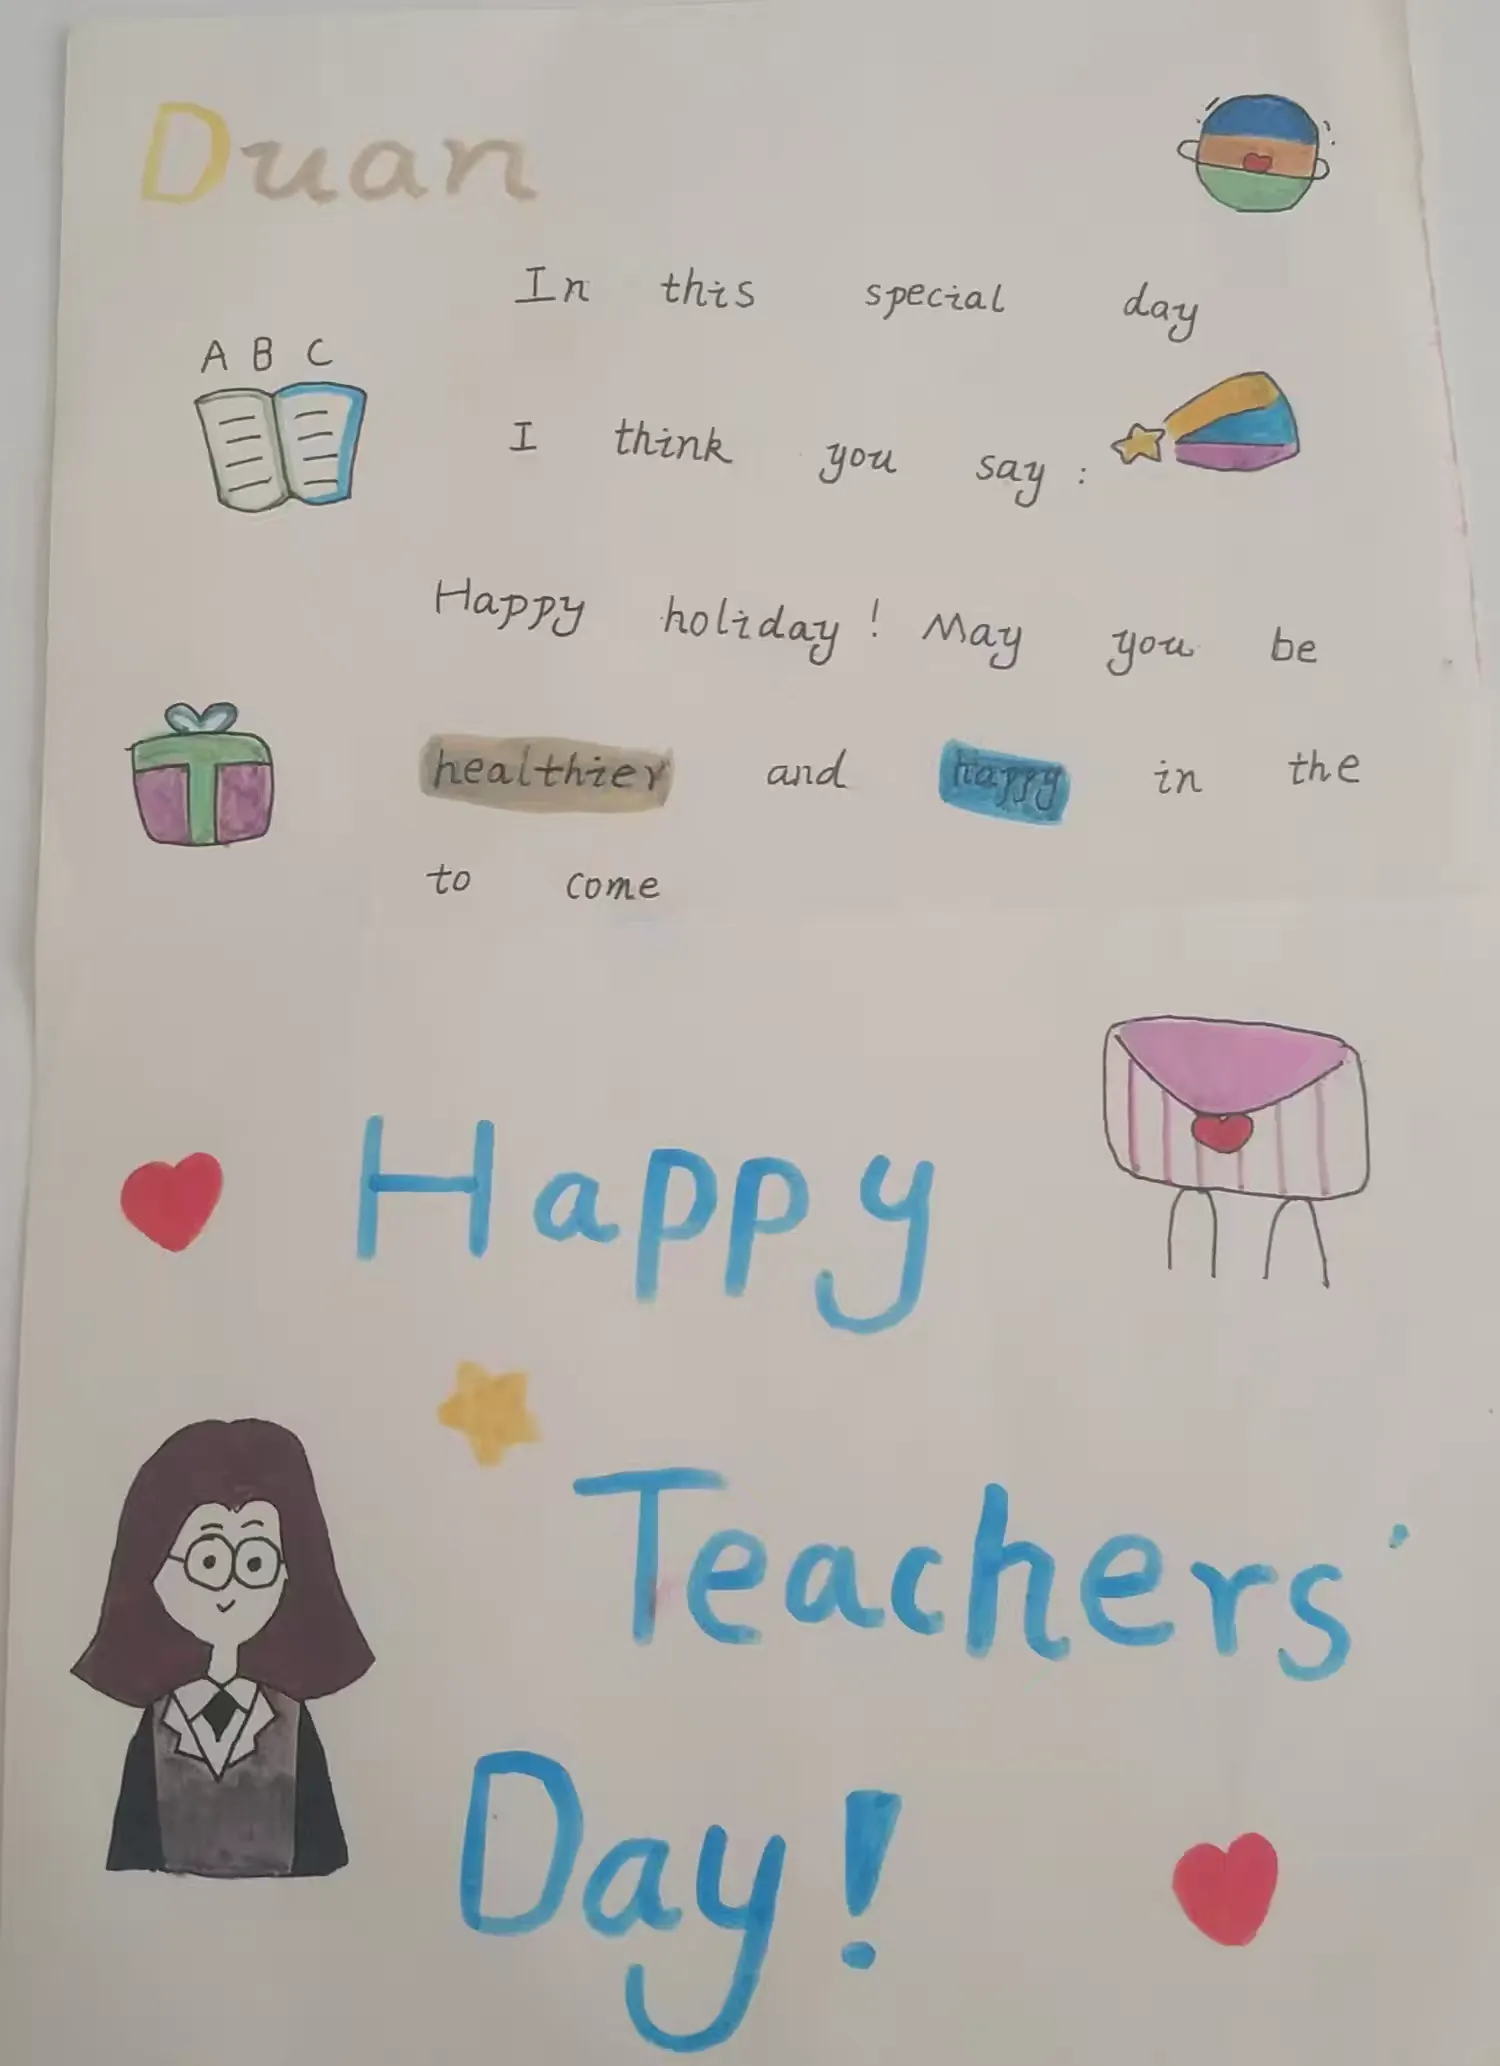 Duan
In this special day
A B C
I think you say :
Happy holiday! May you be
healthier and happy in the
to come
Happy
Teachers'
Day!